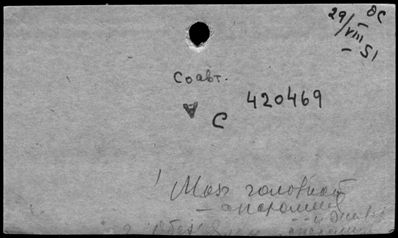 ОС
29/VIII
– 51
Соавт.
420469
С
Мозг головной
– анатомия